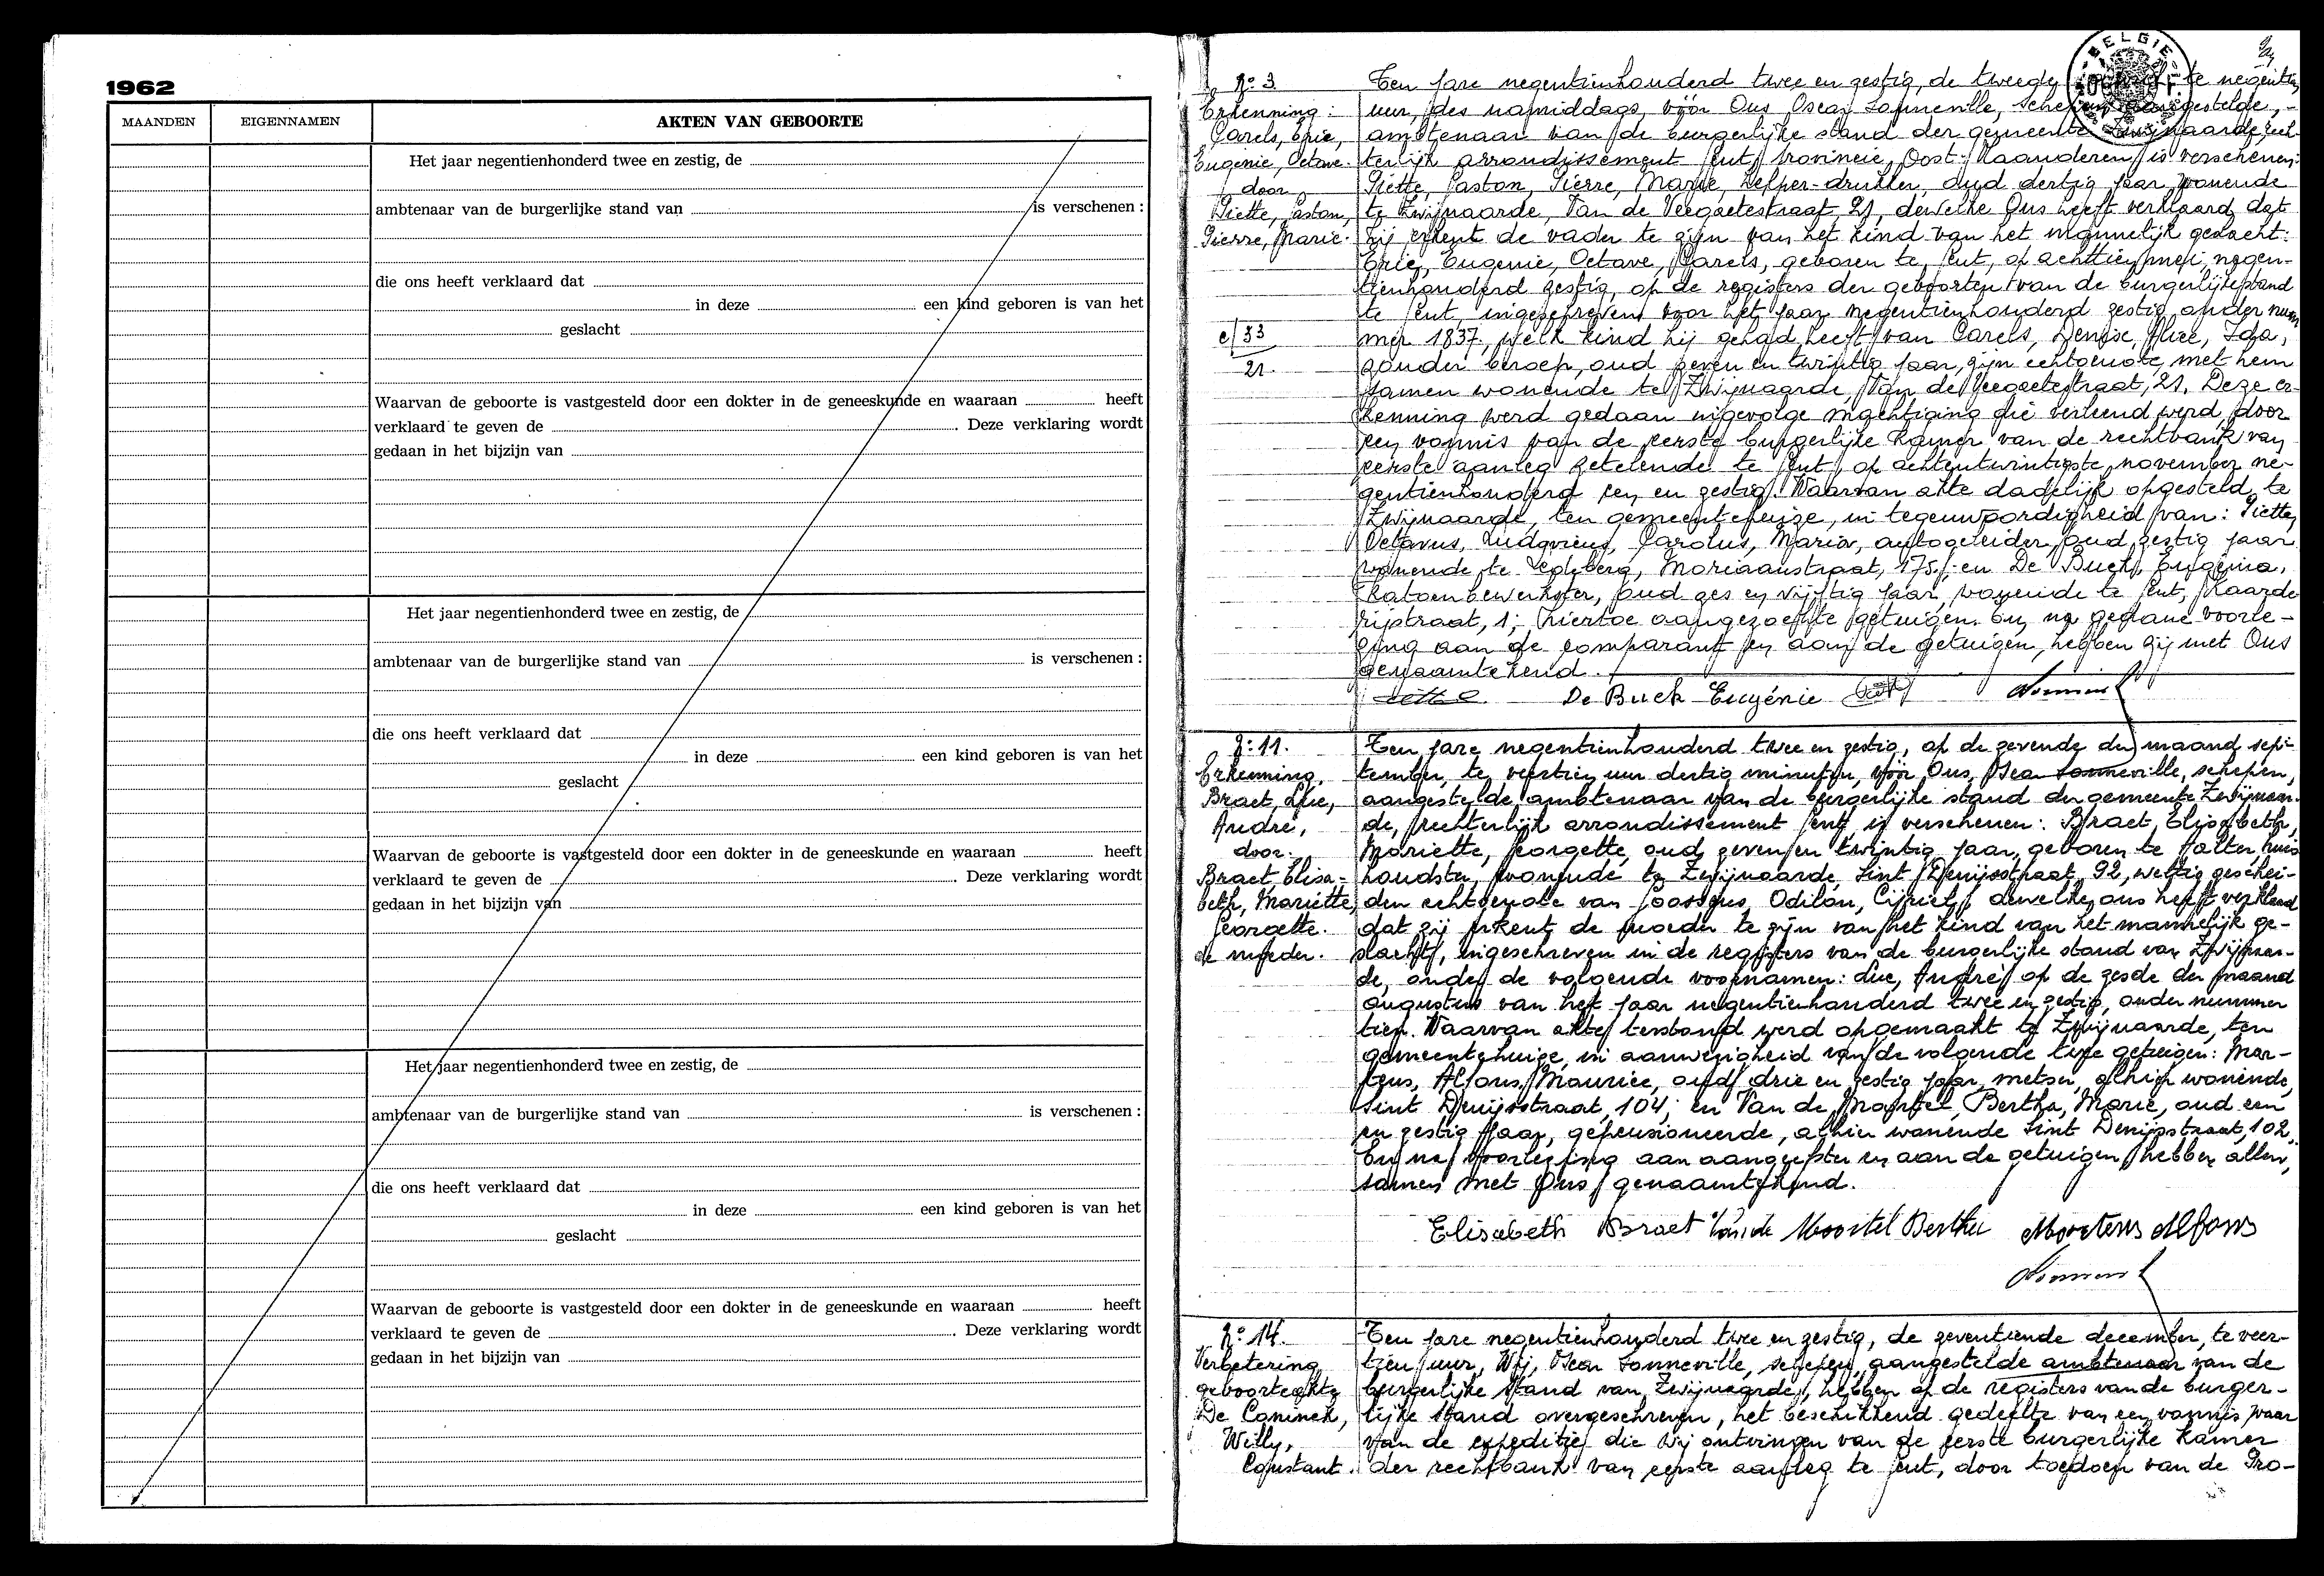 1962
MAANDEN
EIGENNAMEN
AKTEN VAN GEBOORTE
Het jaar negentienhonderd twee en zestig, de
ambtenaar van de burgerlijke stand van is verschenen :
die ons heeft verklaard dat
in deze een kind geboren is van het
geslacht
Waarvan de geboorte is vastgesteld door een dokter in de geneeskunde en waaraan heeft
verklaard te geven de . Deze verklaring wordt
gedaan in het bijzijn van
Het jaar negentienhonderd twee en zestig, de
ambtenaar van de burgerlijke stand van is verschenen :
die ons heeft verklaard dat
in deze een kind geboren is van het
geslacht
Waarvan de geboorte is vastgesteld door een dokter in de geneeskunde en waaraan heeft
verklaard te geven de . Deze verklaring wordt
gedaan in het bijzijn van
Het jaar negentienhonderd twee en zestig, de
ambtenaar van de burgerlijke stand van is verschenen :
die ons heeft verklaard dat
in deze een kind geboren is van het
geslacht
Waarvan de geboorte is vastgesteld door een dokter in de geneeskunde en waaraan heeft
verklaard te geven de . Deze verklaring wordt
gedaan in het bijzijn van
BELGIE
No 3.
Erkenning :
Carels, Eric,
Eugenie, Octave.
door
Piette, Gaston,
Pierre, Marie.
c/53
21.
Ten jare negentienhonderd twee en zestig, de tweede te negentien
uur, des namiddags, vóór Ons Oscar Sonneville, schepen aangestelde, -
ambtenaar van de burgerlijke stand der gemeente Zwijnaarde, rech-
terlijk arrondissement Gent, provincie Oost-Vlaanderen, is verschenen:
Piette, Gaston, Pierre, Marie, helper-drukker, oud dertig jaar, wonende
te Zwijnaarde, Van de Veegaetestraat, 21, dewelke Ons heeft verklaard dat
hij erkent de vader te zijn van het kind van het mannelijk geslacht:
Eric, Eugenie, Octave, Carels, geboren te Gent, op achttien mei negen-
tienhonderd zestig, op de registers der geboorten van de burgerlijke stand
te Gent, ingeschreven voor het jaar negentienhonderd zestig onder num
mer 1837, welk kind hij gehad heeft van Carels, Denise, Alice, Ida,
zonder beroep, oud zeven en twintig jaar, zijn echtgenote, met hem
samen wonende te Zwijnaarde, Van de Veegaetestraat, 21. Deze er-
kenning werd gedaan ingevolge machtiging die verleend werd door
een vonnis van de eerste burgerlijke kamer van de rechtbank van
eerste aanleg zetelende te Gent, op achtentwintigste november ne-
gentienhonderd een en zestig. Waarvan akte dadelijk opgesteld te
Zwijnaarde, ten gemeentehuize, in tegenwoordigheid van : Piette,
Octavus, Ludovicus, Carolus, Maria, autogeleider, oud zestig jaar
wonende te Ledeberg, Moriaanstraat, 175; en De Buck, Eugenia,
katoenbewerkster, oud zes en vijftig jaar, wonende te Gent,
rijstraat, 1; hiertoe aangezochte getuigen. En, na gedane voorle-
zing aan de comparant en aan de getuigen, hebben zij met Ons
genaamtekend.
De Buck Eugénie
No 11.
Erkenning.
Braet, Luc,
André,
door.
Braet, Elisa-
beth, Mariette,
Georgette.
de moeder.
Ten jare negentienhonderd twee en zestig, op de zevende der maand sep-
tember, te veertien uur dertig minuten, vóór Ons, Oscar Sonneville, schepen,
aangestelde ambtenaar van de burgerlijke stand der gemeente Zwijnaar-
de, rechterlijk arrondissement Gent, is verschenen : Braet, Elisabeth,
Mariette, Georgette, oud zeven en twintig jaar, geboren te Aalter, huis
houdster, wonende te Zwijnaarde, Sint Denijsstraat, 92, wettig geschei-
den echtgenote van Goossens, Odilon, Cijriel, dewelke ons heeft verklaard
dat zij erkent de moeder te zijn van het kind van het mannelijk ge-
slacht, ingeschreven in de registers van de burgerlijke stand van Zwijnaar-
de, onder de volgende voornamen : Luc, André, op de zesde der maand
augustus van het jaar negentienhonderd twee en zestig, onder nummer
tien. Waarvan akte terstond werd opgemaakt te Zwijnaarde, ten
gemeentehuize, in aanwezigheid van de volgende twee getuigen : Mar-
tens, Alfons, Maurice, oud drie en zestig jaar, metser, alhier wonende,
Sint Denijsstraat, 104; en Van de Moortel, Bertha, Marie, oud een
en zestig jaar, gepensioneerde, alhier wonende Sint Denijsstraat, 102.
En na voorlezing aan aangeefster en aan de getuigen, hebben allen,
samen met Ons, genaamtekend.
Elisabeth Braet Van de Moortel Bertha Martens Alfons
No 14.
Verbetering
geboorteakte
De Coninck,
Willy,
Constant.
Ten jare negentienhonderd twee en zestig, de zeventiende december, te veer-
tien uur, Wij, Oscar Sonneville, schepen, aangestelde ambtenaar van de
burgerlijke stand van Zwijnaarde, hebben op de registers van de burger-
lijke stand overgeschreven, het beschikkend gedeelte van een vonnis waar
van de expeditie die wij ontvingen van de eerste burgerlijke kamer
der rechtbank van eerste aanleg te Gent, door toedoen van de Pro-